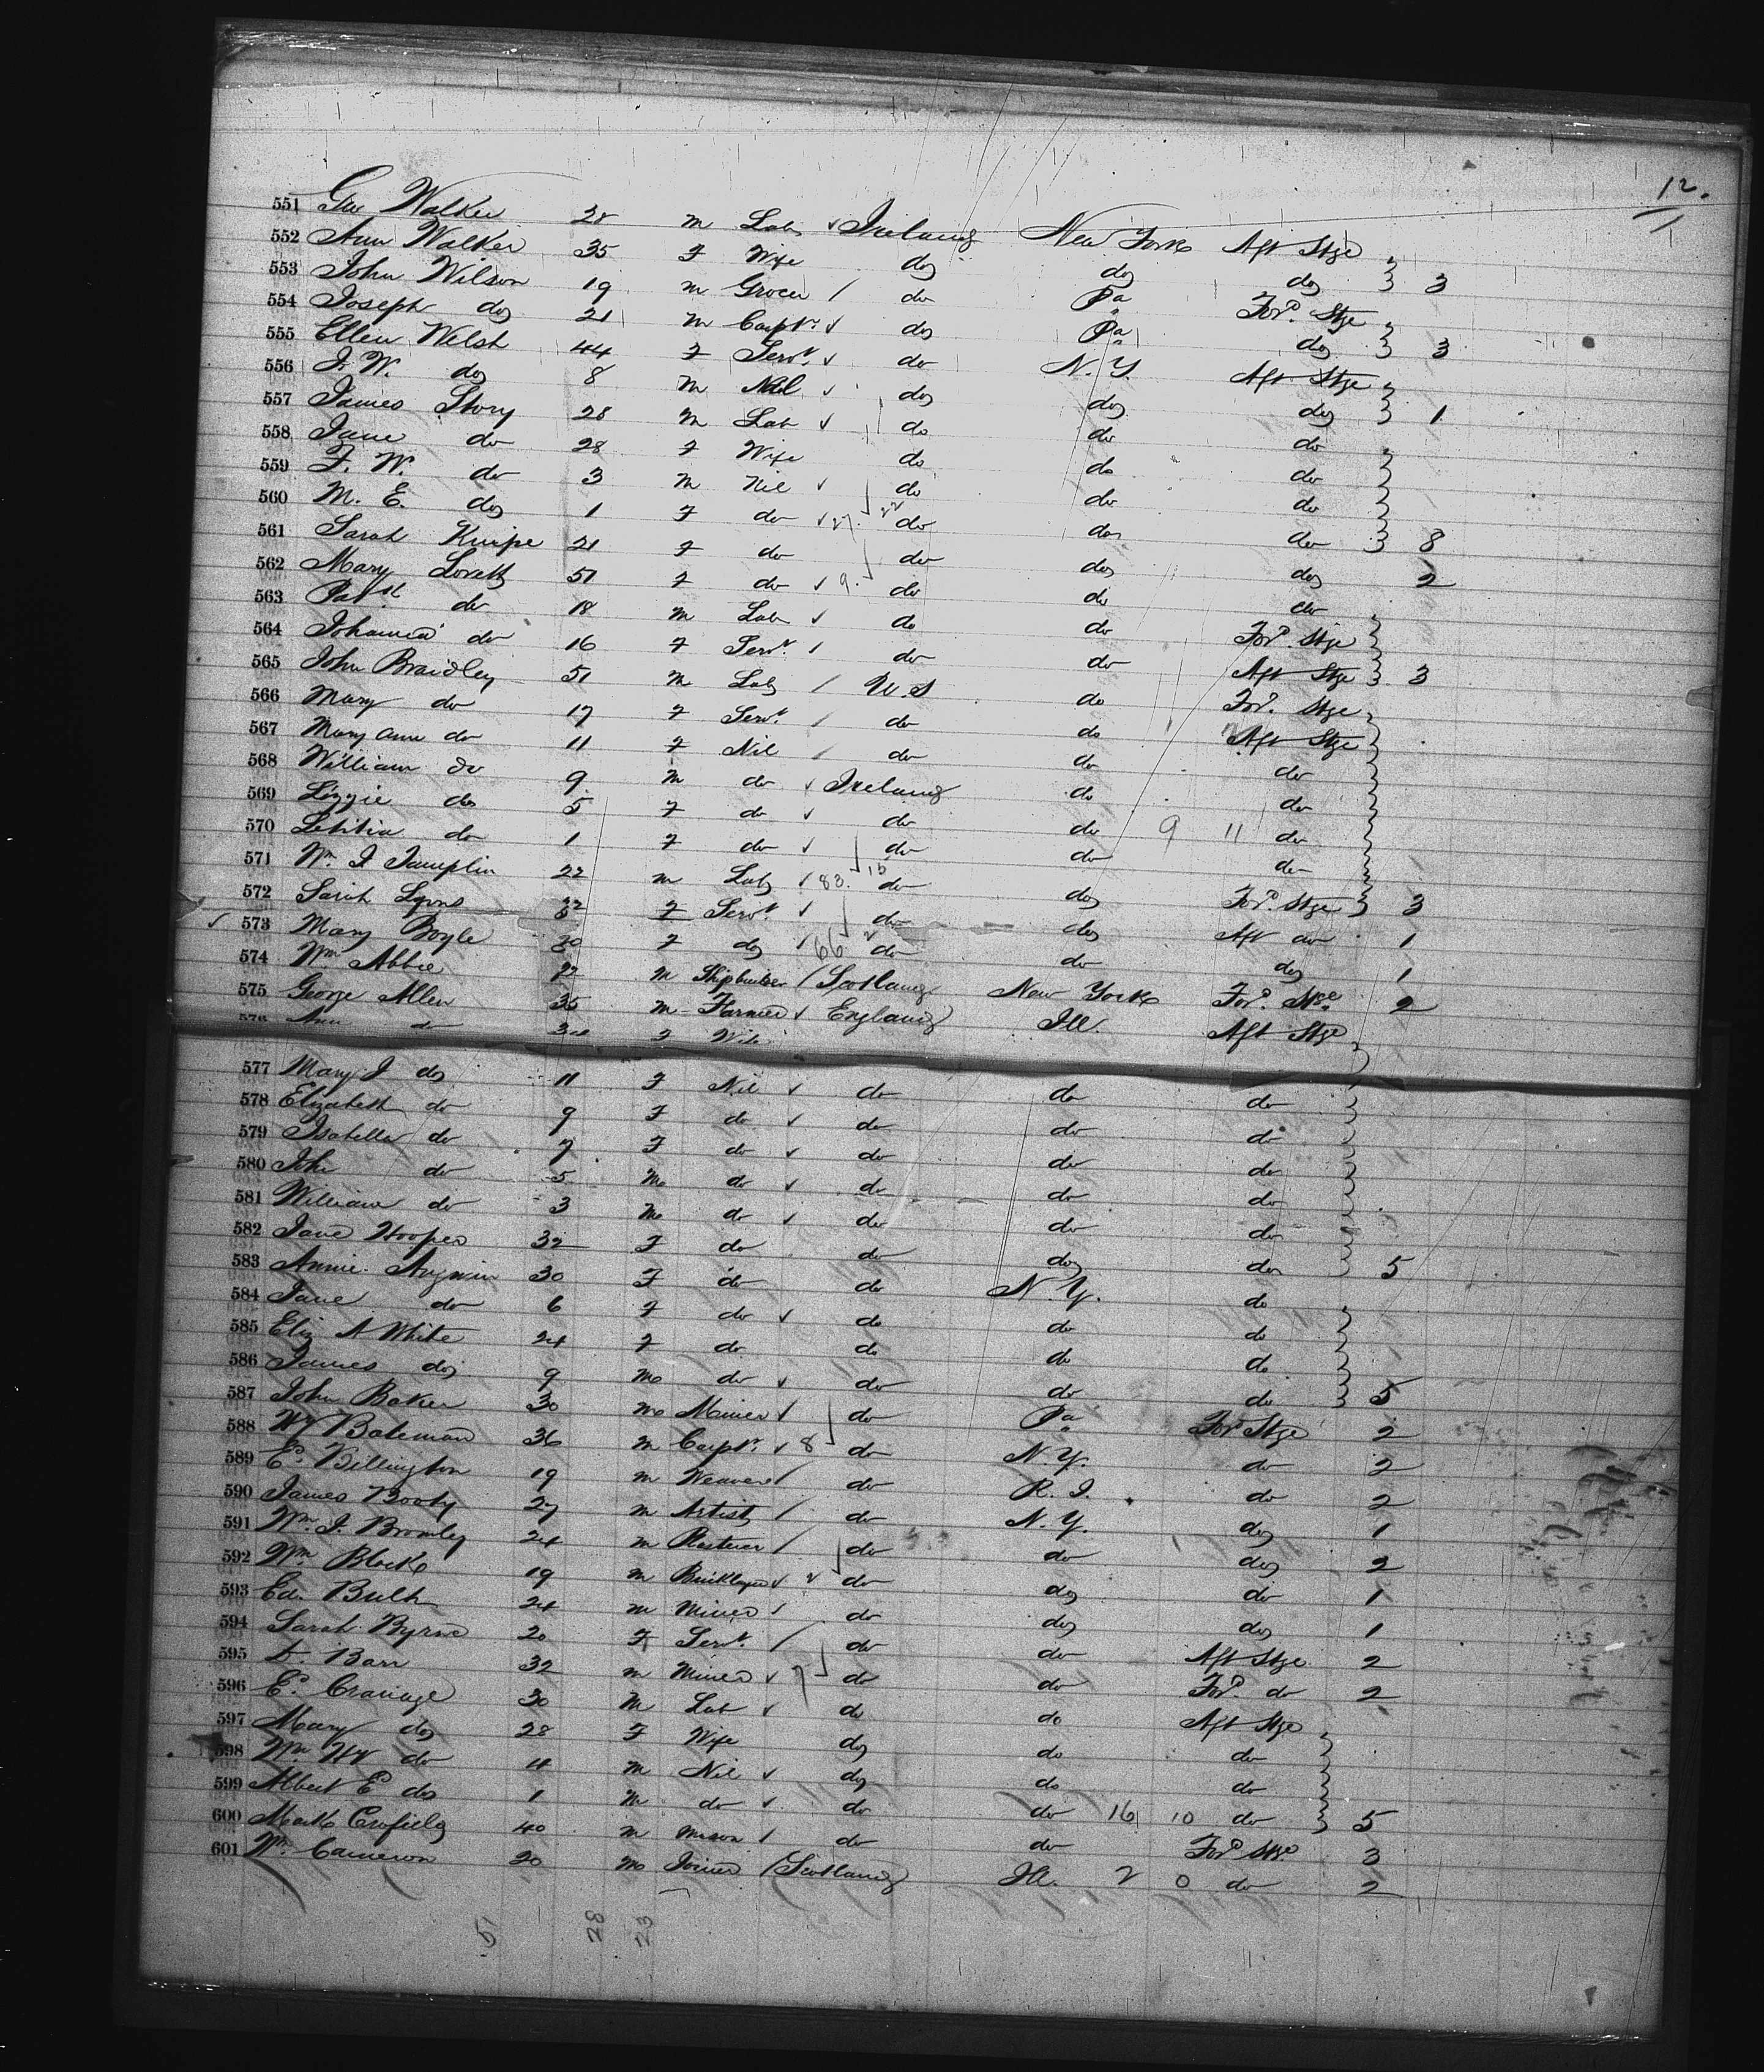 12.
551 Geo Walker 28 m Lab ✓ Ireland New York Aft Stge
552 Ann Walker 35 F Wife do do do } 3
553 John Wilson 19 m Grocer / do Pa Ford. Stge
554 Joseph do 21 m Carptr. ✓ do Pa do } 3
555 Ellen Welsh 44 F Servt. ✓ do N.Y. Aft Stge
556 J. W. do 8 m Nil ✓ do do do } 1
557 James Story 28 m Lab ✓ do do do
558 Jane do 28 F Wife do do do
559 F. W. do 3 m Nil ✓ do do do
560 M. E. do 1 F do ✓ 27. 22 do do do } 8
561 Sarah Knipe 21 F do do do do 2
562 Mary Lovett 51 F do ✓ 9. do do do
563 Patk do 18 m Lab ✓ do do Ford. Stge
564 Johanna do 16 F Servt. / do do Aft Stge } 3
565 John Braidley 51 m Lab / U S do Ford. Stge
566 Mary do 17 F Servt. / do do Aft Stge
567 Mary Ann do 11 F Nil / do do do
568 William do 9 m do ✓ Ireland do do
569 Lizzie do 5 F do ✓ do do 9 11 do
570 Letitia do 1 F do ✓ do do do
571 Wm. J Tamplin 22 m Lab ✓ 83. 15 do do Ford. Stge } 3
572 Sarah Lyons 22 F Servt ✓ do do Aft do 1
✓ 573 Mary Boyle 30 F do ✓ 66 2 do do do 1
574 Wm Abbie 22 m Shipbuilder / Scotland New York Ford. Stge 2
575 George Allen 35 m Farmer ✓ England Ill. Aft Stge
576 Ann do F Wife
577 Mary J do 11 F Nil ✓ do do do
578 Elizabeth do 9 F do ✓ do do do
579 Isabella do 7 F do ✓ do do do
580 John do 5 m do ✓ do do do
581 William do 3 m do ✓ do do do
582 Jane Hooper 32 F do do do do } 5
583 Annie Angwin 30 F do do N.Y. do
584 Jane do 6 F do ✓ do do do
585 Eliz A White 24 F do do do do
586 James do 9 m do ✓ do do do } 5
587 John Baker 30 m Miner ✓ do Pa Ford Stge 2
588 Hy Bateman 36 m Carptr. ✓ 8 do N.Y. do 2
589 Ed. Billington 19 m Weaver / do R. I. do 2
590 James Booty 27 m Artist / do N.Y. do 1
591 Wm. J. Bromley 24 m Plasterer / do do do 2
592 Wm Black 19 m Bricklayer ✓ 2 do do do 1
593 Ed. Bulth 24 m Miner / do do do 1
594 Sarah Byrne 20 F Servt. / do do Aft Stge 2
595 D. Barr 32 m Miner ✓ 7 do do Ford. do 2
596 Ed. Cravage 30 m Lab ✓ do do Aft Stge
597 Mary do 28 F Wife do do do
598 Wm Hy do 4 m Nil ✓ do do do
599 Albert E do 1 m do ✓ do do 16 10 do } 5
600 Mark Crofield 40 m Mason / do do Ford Stge 3
601 Wm. Cameron 20 m Joiner / Scotland Ill. 2 0 do 2
51 28 23